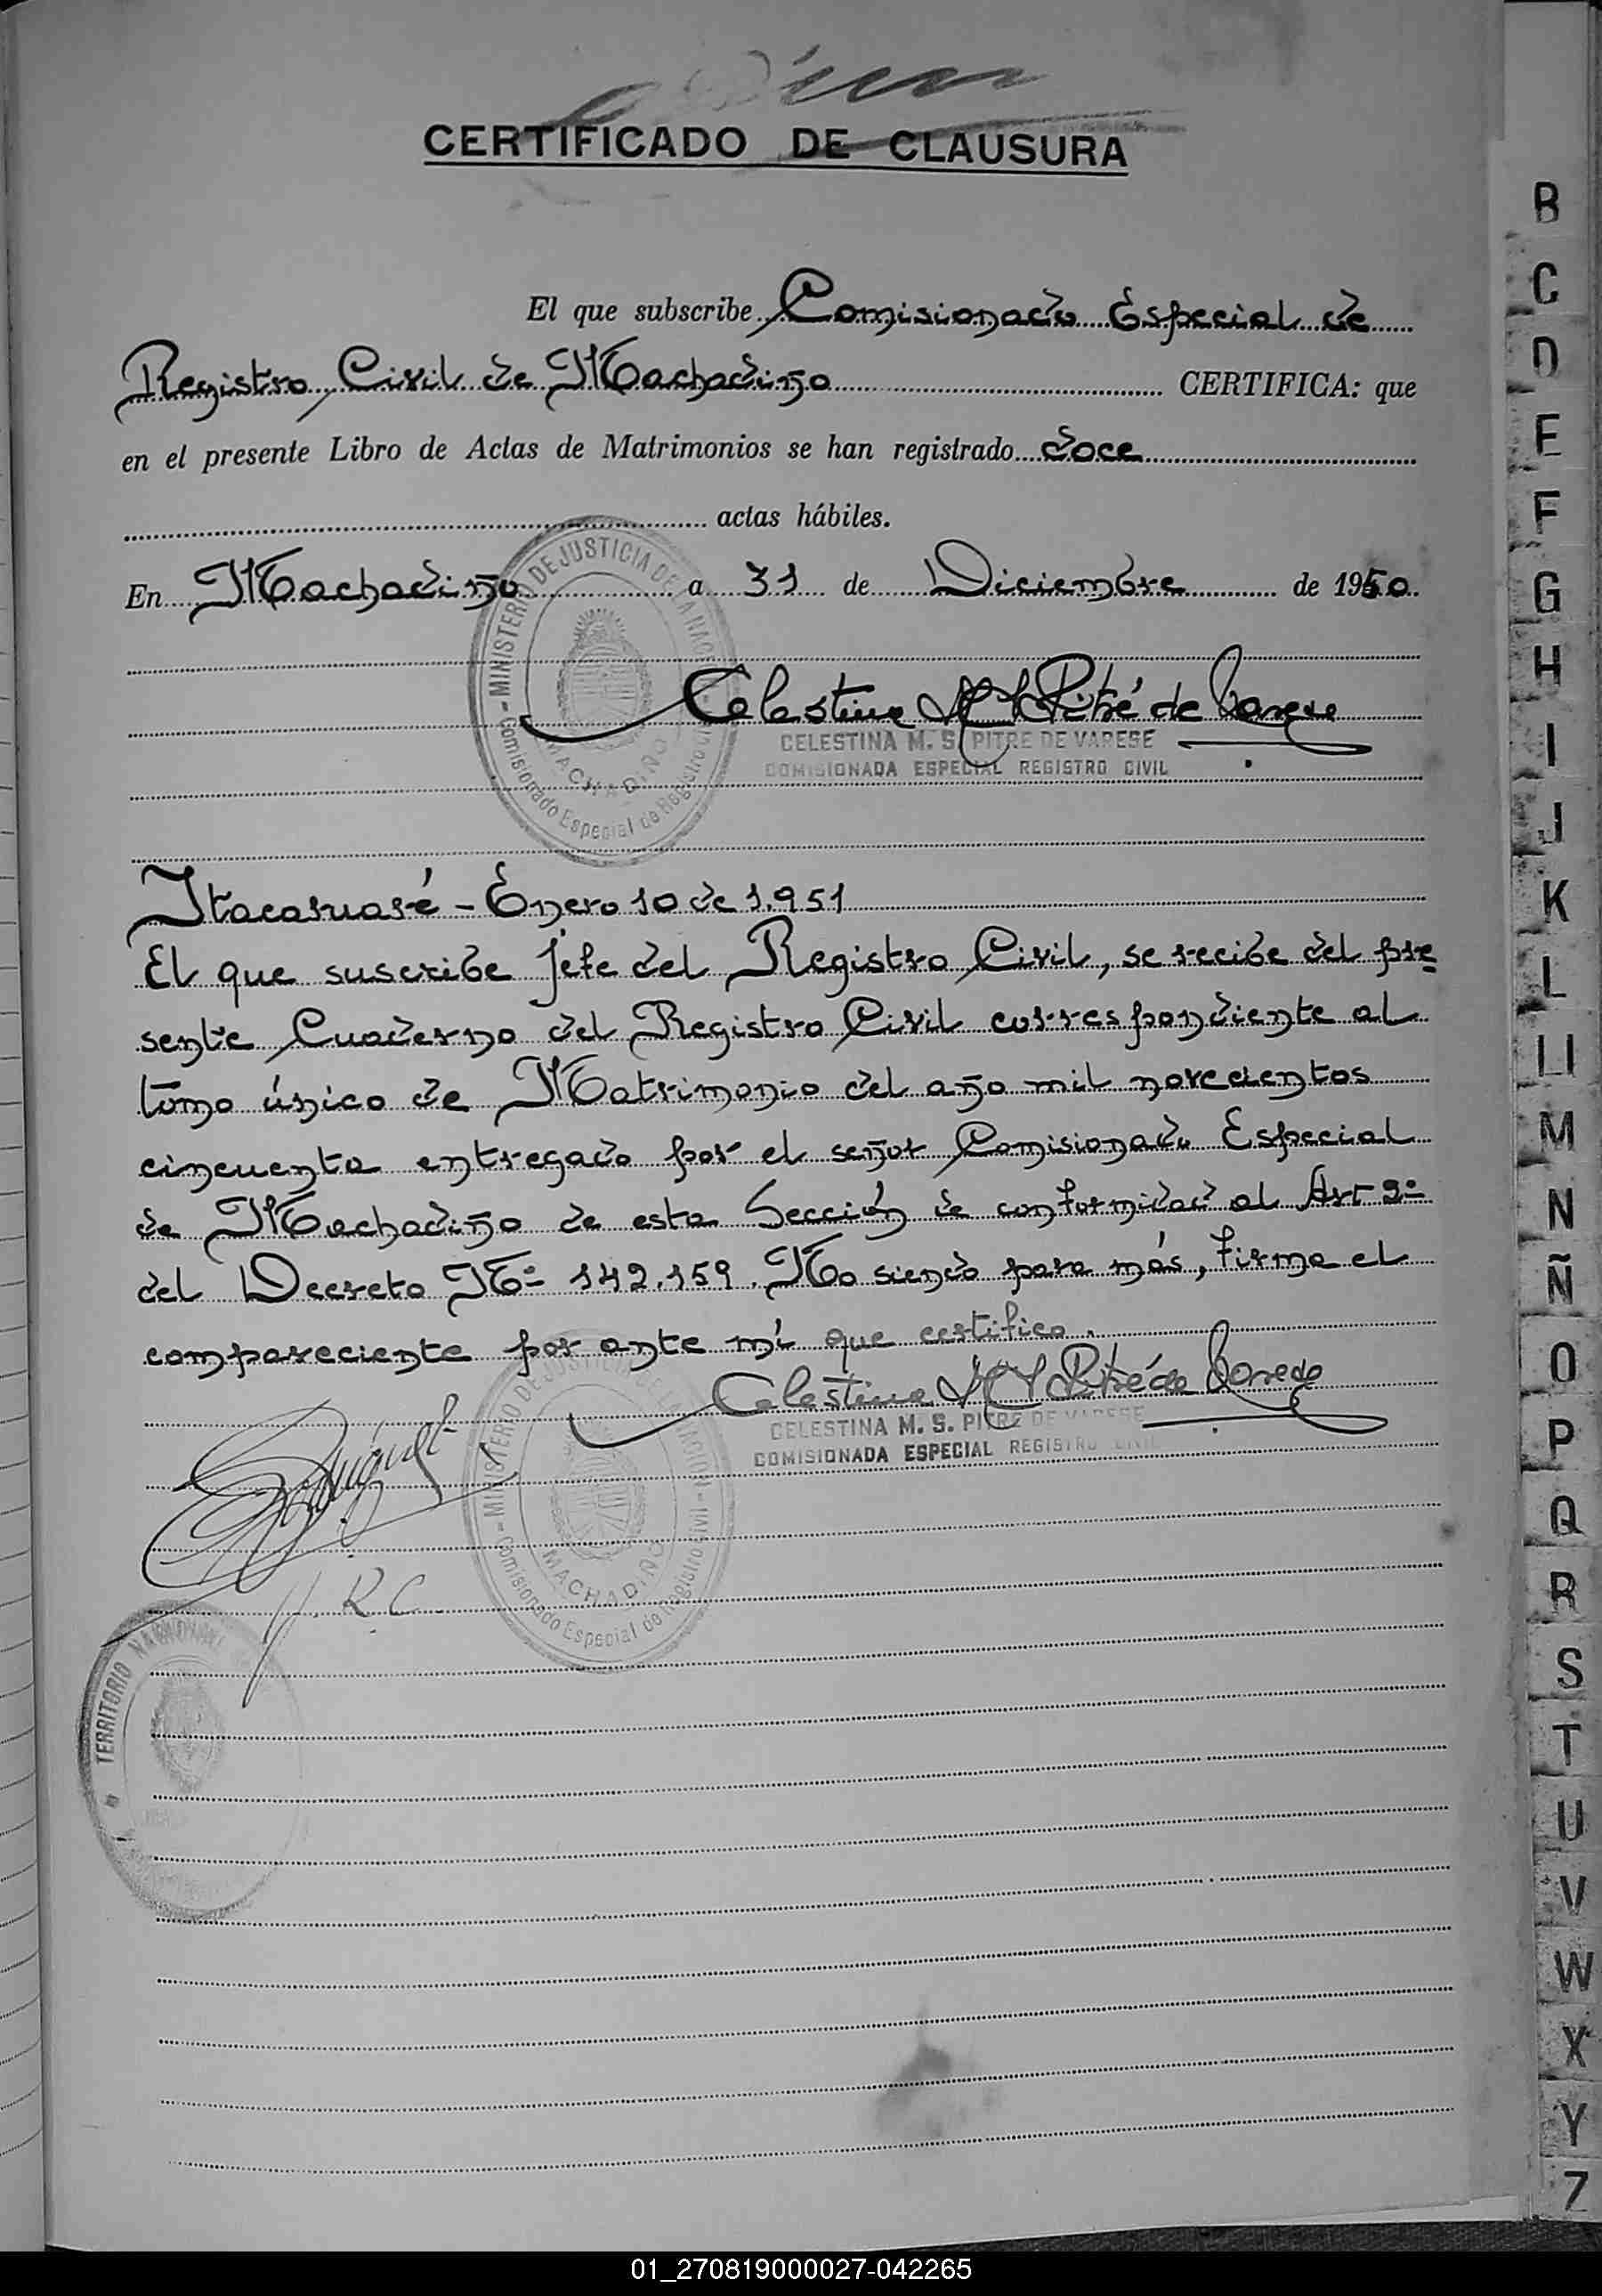 CERTIFICADO DE CLAUSURA
El que subscribe Comisionado Especial de
Registro Civil de Machadiño CERTIFICA: que
en el presente Libro de Actas de Matrimonios se han registrado doce
actas hábiles.
En Machadiño a 31 de Diciembre de 1950.
MINISTERIO DE JUSTICIA DE LA NACION
MACHADIÑO
Comisionado Especial de Registro Civil
Celestina M S Pitré de Varese
CELESTINA M. S. PITRE DE VARESE
COMISIONADA ESPECIAL REGISTRO CIVIL
Itacaruaré - Enero 10 de 1.951
El que suscribe Jefe del Registro Civil, se recibe del pre
sente Cuaderno del Registro Civil correspondiente al
tomo único de Matrimonio del año mil novecientos
cincuenta entregado por el señor Comisionado Especial
de Machadiño de esta Sección de conformidad al Art 9º
del Decreto Nº 142.159. No siendo para más, firma el
compareciente por ante mí que certifico.
Celestina M S Pitré de Varese
CELESTINA M. S. PITRE DE VARESE
COMISIONADA ESPECIAL REGISTRO CIVIL
MINISTERIO DE JUSTICIA DE LA NACION
MACHADIÑO
Comisionado Especial de Registro Civil
J. R. C.
TERRITORIO NACIONAL
B
C
D
E
F
G
H
I
J
K
L
Ll
M
N
Ñ
O
P
Q
R
S
T
U
V
W
X
Y
Z
01_270819000027-042265